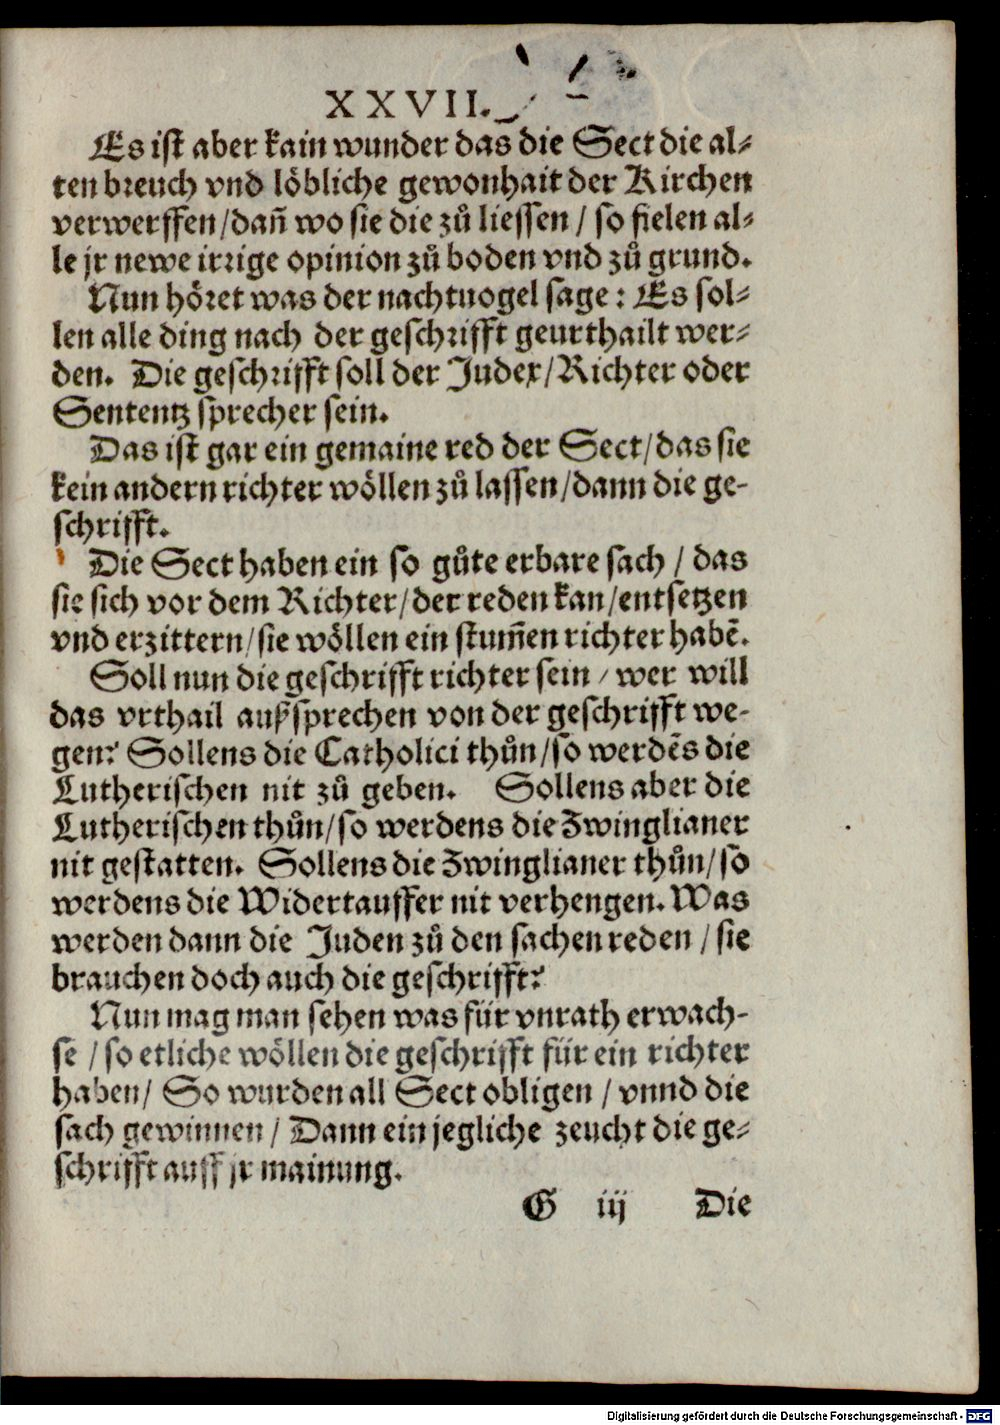 XXVII.
Es ist aber kain wunder das die Sect die al⸗
ten breuch vnd löbliche gewonhait der Kirchen
verwerffen/dañ wo sie die zů liessen / so fielen al⸗
le jr newe irrige opinion zů boden vnd zů grund.
Nun höret was der nachtuogel sage: Es sol⸗
len alle ding nach der geschrifft geurthailt wer⸗
den. Die geschrifft soll der Judex/Richter oder
Sententz sprecher sein.
Das ist gar ein gemaine red der Sect/das sie
kein andern richter wöllen zů lassen/dann die ge-
schrifft.
Die Sect haben ein so gůte erbare sach / das
sie sich vor dem Richter/der reden kan/entsetzen
vnd erzittern/sie wöllen ein stum̃en richter habẽ.
Soll nun die geschrifft richter sein / wer will
das vrthail außsprechen von der geschrifft we-
gen? Sollens die Catholici thůn/so werdẽs die
Lutherischen nit zů geben. Sollens aber die
Lutherischen thůn/so werdens die Zwinglianer
nit gestatten. Sollens die Zwinglianer thůn/so
werdens die Widertauffer nit verhengen. Was
werden dann die Juden zů den sachen reden / sie
brauchen doch auch die geschrifft?
Nun mag man sehen was für vnrath erwach-
se / so etliche wöllen die geschrifft für ein richter
haben/ So wurden all Sect obligen / vnnd die
sach gewinnen / Dann ein jegliche zeucht die ge⸗
schrifft auff jr mainung.
G iij Die
Digitalisierung gefördert durch die Deutsche Forschungsgemeinschaft - DFG